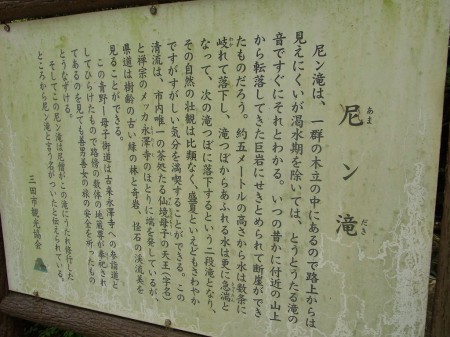 尼ン滝
あま
だき
尼ン滝は、一群の木立の中にあるので路上からは
見えにくいが渇水期を除いては、とうとうたる滝の
音ですぐにそれとわかる。いつの昔かに付近の山上
から転落してきた巨岩にせきとめられて断崖ができ
たものだろう。約五メートルの高さから水は数条に
岐れて落下し、滝つぼからあふれる水は更に急湍と
わか
なって、次の滝つぼに落下するという二段滝となり、
その自然の壮観は比類なく、盛夏といえどもさわやか
ですがすがしい気分を満喫することができる。この
清流は、市内唯一の茶処たる仙境母子の天王(字名)
と禅宗のメッカ永澤寺のほとりに端を発しているが、
県道は樹齢の古い緑の林と奇岩、怪石の渓流美を
見ることができる。
この青野ー母子街道は古来永澤寺への参詣道と
してひらけたもので路傍の数体の地蔵尊が奉祀され
てあるのを見ても善男善女の旅の安全を祈ったもの
とうなずける。
そしてこの尼ン滝は尼僧がこの滝にうたれ修行した
ところから尼ン滝と言う名がついたと伝えられている。
三田市観光協会